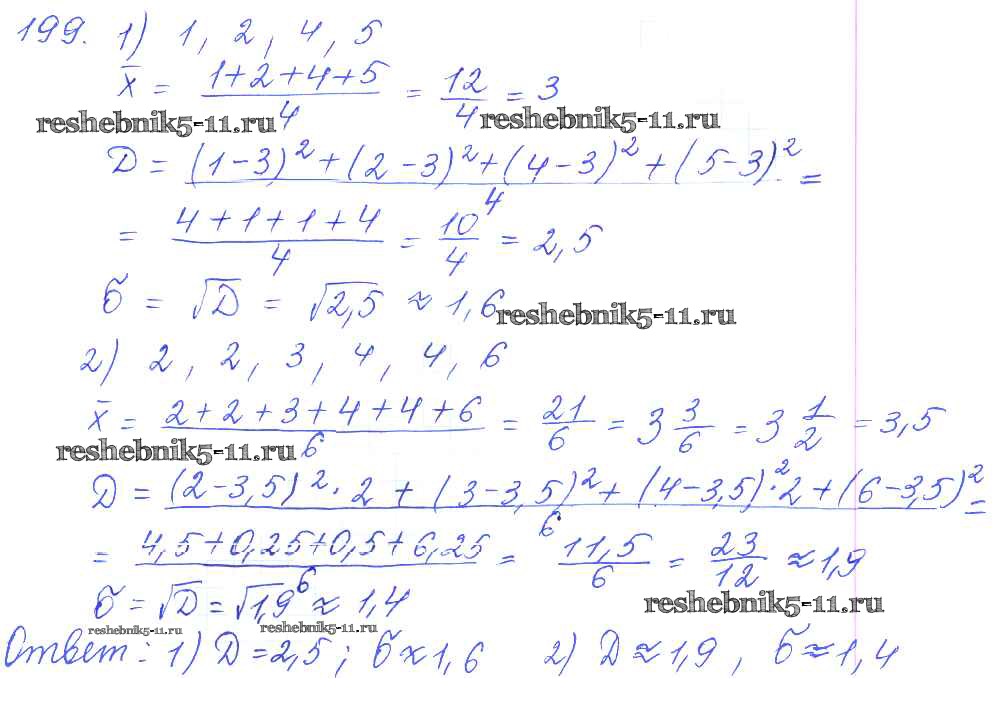 199. 1) 1, 2, 4, 5
x̄ = (1+2+4+5)/4 = 12/4 = 3
reshebnik5-11.ru reshebnik5-11.ru
D = ((1-3)² + (2-3)² + (4-3)² + (5-3)²)/4 =
= (4+1+1+4)/4 = 10/4 = 2,5
б = √D = √2,5 ≈ 1,6
reshebnik5-11.ru
2) 2, 2, 3, 4, 4, 6
x̄ = (2+2+3+4+4+6)/6 = 21/6 = 3 3/6 = 3 1/2 = 3,5
reshebnik5-11.ru
D = ((2-3,5)²·2 + (3-3,5)² + (4-3,5)²·2 + (6-3,5)²)/6 =
= (4,5+0,25+0,5+6,25)/6 = 11,5/6 = 23/12 ≈ 1,9
б = √D = √1,9 ≈ 1,4
reshebnik5-11.ru
reshebnik5-11.ru reshebnik5-11.ru
Ответ: 1) D = 2,5; б ≈ 1,6 2) D ≈ 1,9, б ≈ 1,4